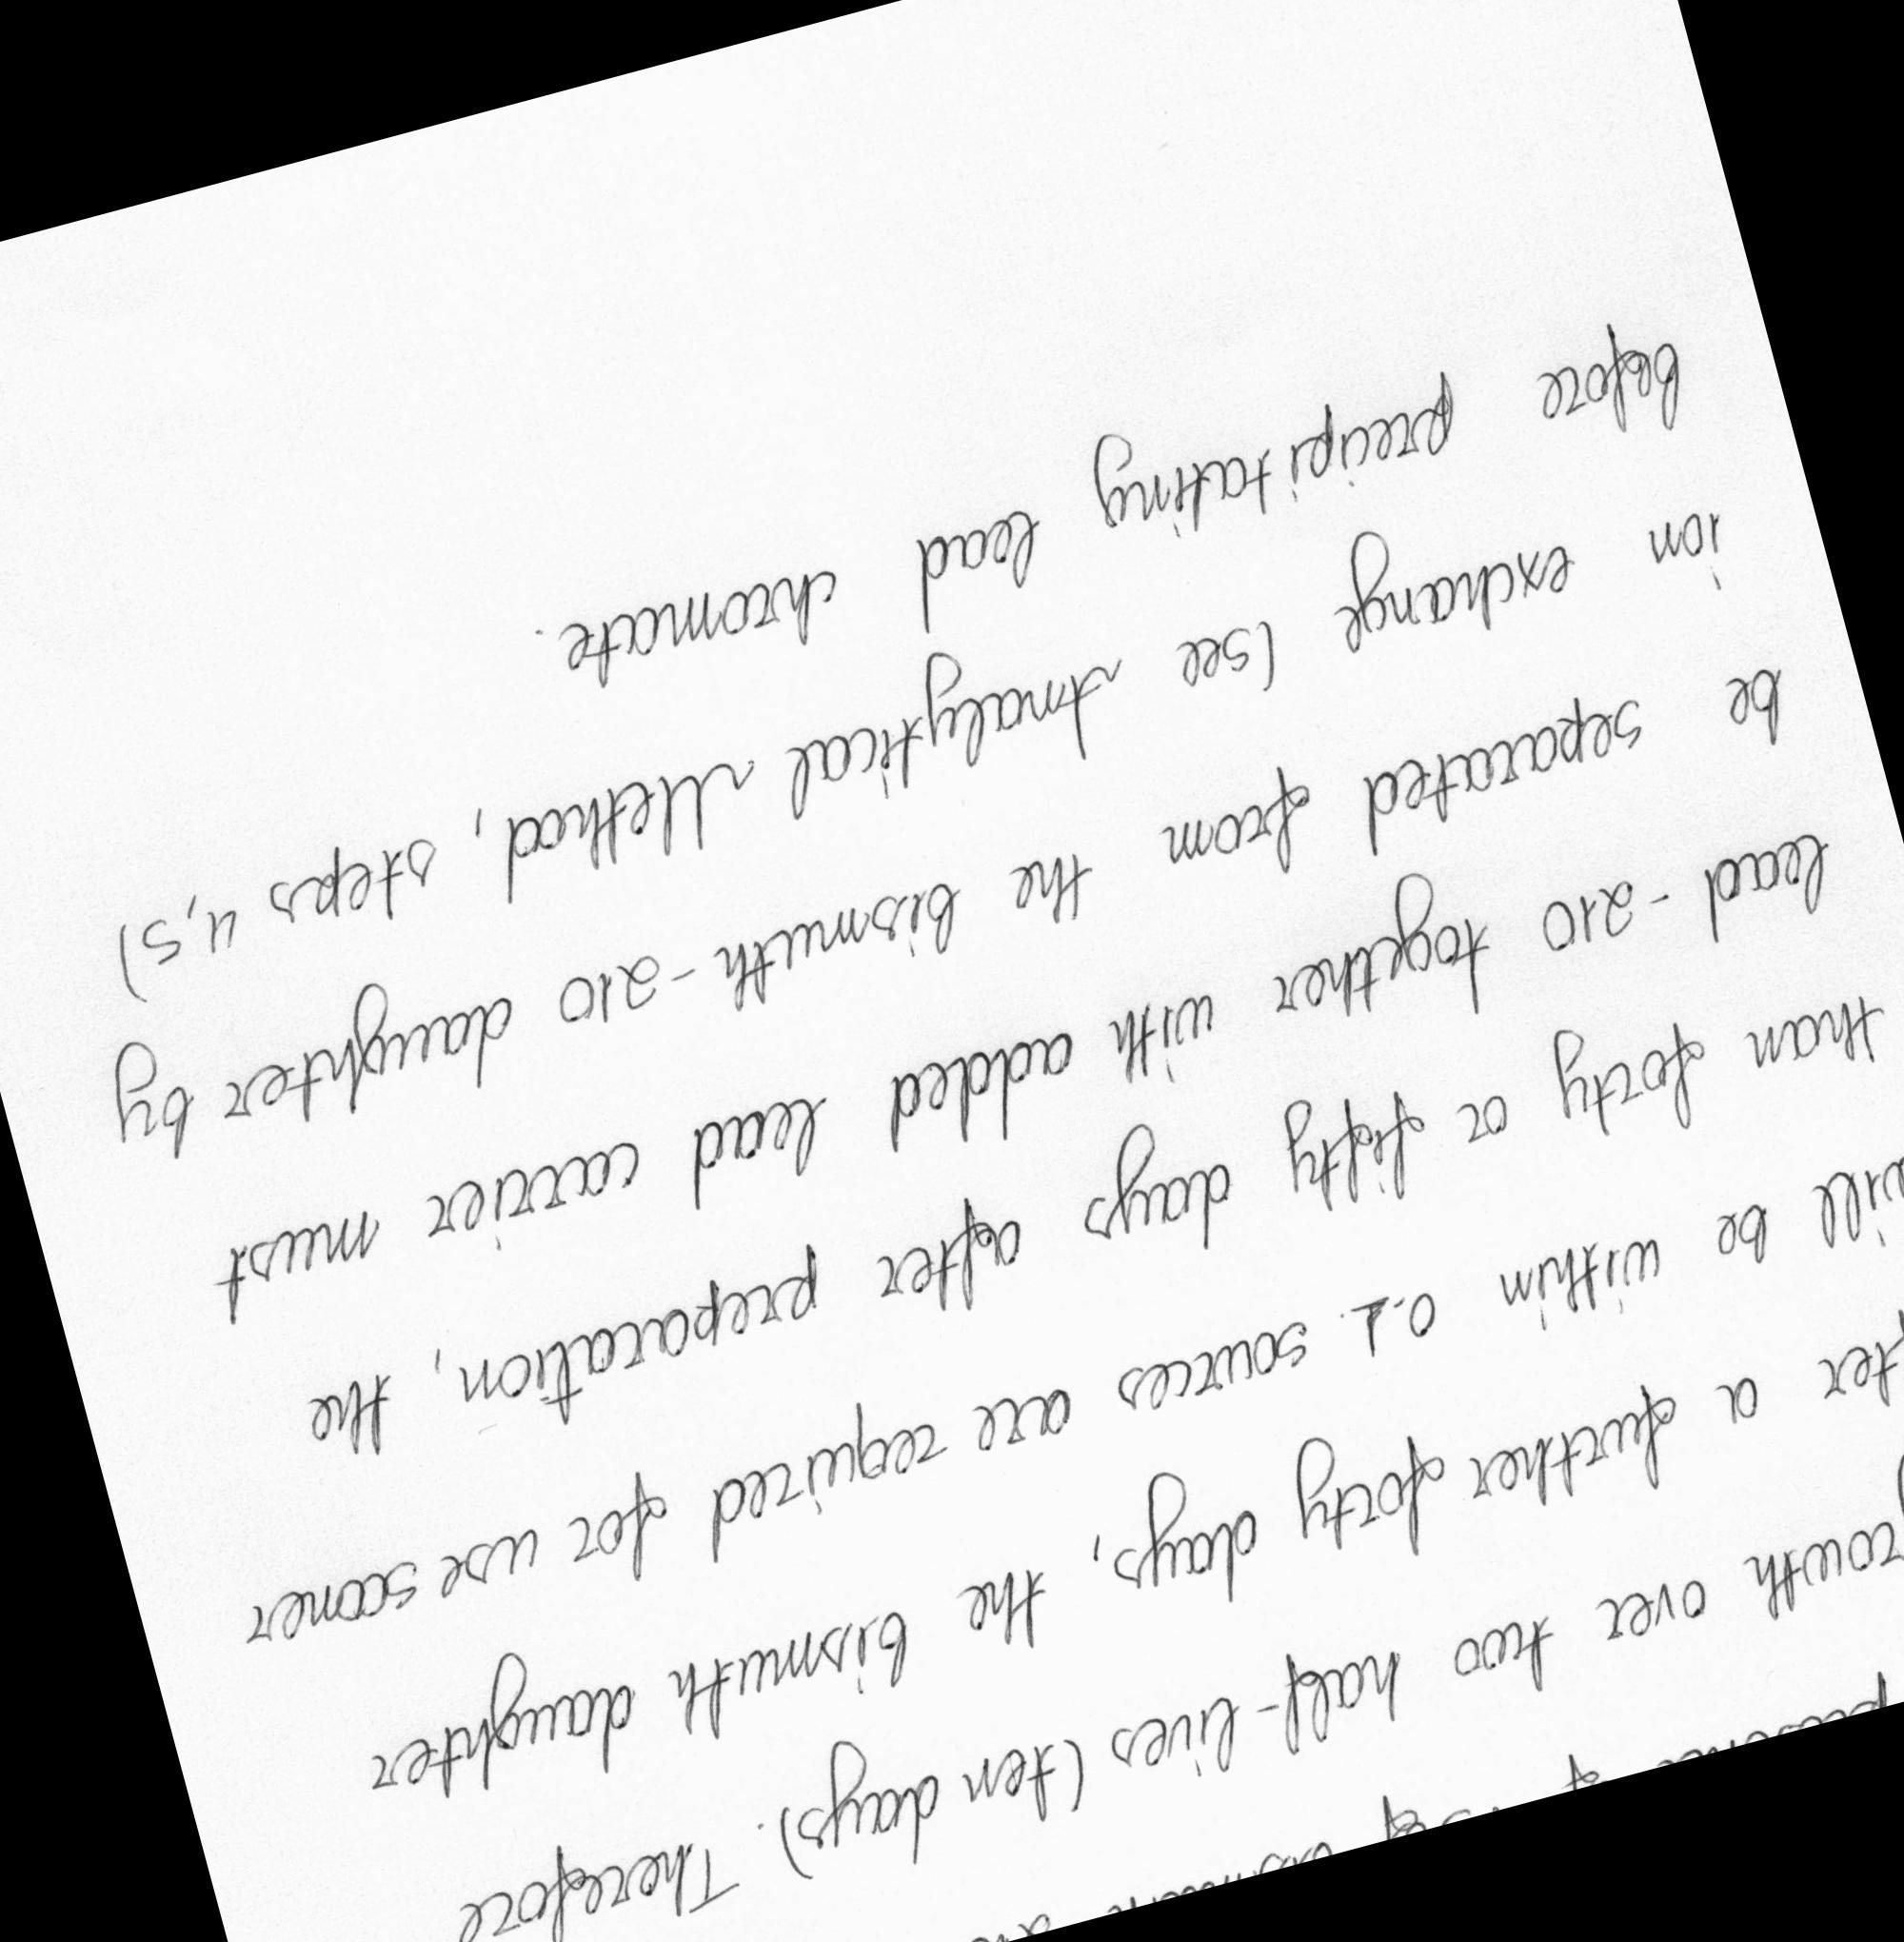 growth over two half-lives (ten days). Therefore
after a further forty days, the bismuth daughter
will be within 0.1. sources are required for use sooner
than forty or fifty days after preparation, the
lead-210 together with added lead carrier must
be separated from the bismuth-210 daughter by
ion exchange (see Analytical Method, steps 4,5)
before precipitating lead chromate.